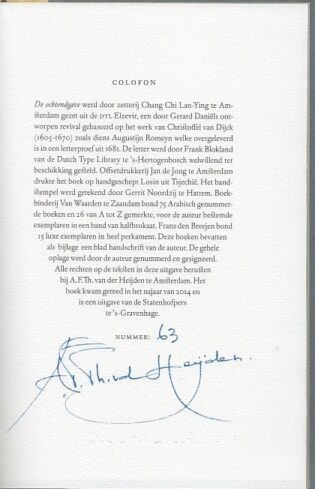 COLOFON
De ochtendgave werd door zetterij Chang Chi Lan-Ying te Am-
sterdam gezet uit de DTL Elzevir, een door Gerard Daniëls ont-
worpen revival gebaseerd op het werk van Christoffel van Dijck
(1605-1670) zoals diens Augustijn Romeyn welke overgeleverd
is in een letterproef uit 1681. De letter werd door Frank Blokland
van de Dutch Type Library te 's-Hertogenbosch welwillend ter
beschikking gesteld. Offsetdrukkerij Jan de Jong te Amsterdam
drukte het boek op handgeschept Losin uit Tsjechië. Het band-
stempel werd getekend door Gerrit Noordzij te Hattem. Boek-
binderij Van Waarden te Zaandam bond 75 Arabisch genummer-
de boeken en 26 van A tot Z gemerkte, voor de auteur bestemde
exemplaren in een band van halfbrokaat. Frans den Breejen bond
15 luxe exemplaren in heel perkament. Deze boeken bevatten
als bijlage een blad handschrift van de auteur. De gehele
oplage werd door de auteur genummerd en gesigneerd.
Alle rechten op de teksten in deze uitgave berusten
bij A.F.Th. van der Heijden te Amsterdam. Het
boek kwam gereed in het najaar van 2014 en
is een uitgave van de Statenhofpers
te 's-Gravenhage.
NUMMER: 63
A.F.Th.vd Heijden.